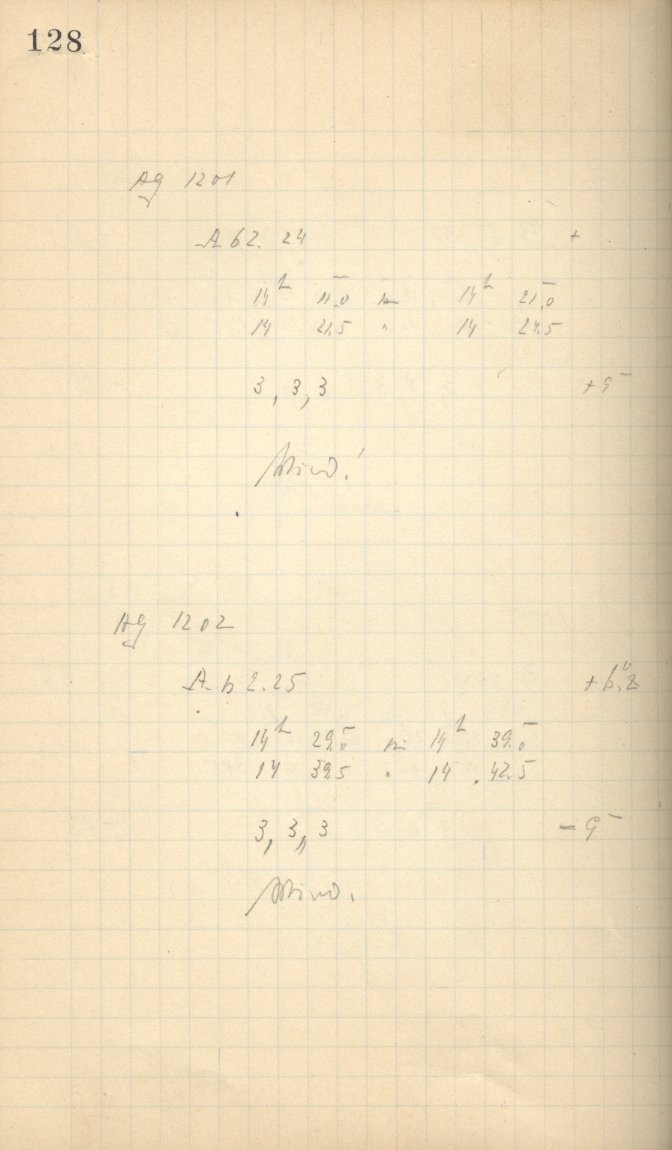 128
Ag 1201
A b 2. 24 +
14h 11.0 14h 21.0
14 21.5 " 14 24.5
3, 3, 3 + 9
Wind!
Ag 1202
A b 2. 25
14h 29.0 14h 39.0
14 39.5 " 14 42.5
3, 3, 3 - 9
Wind.